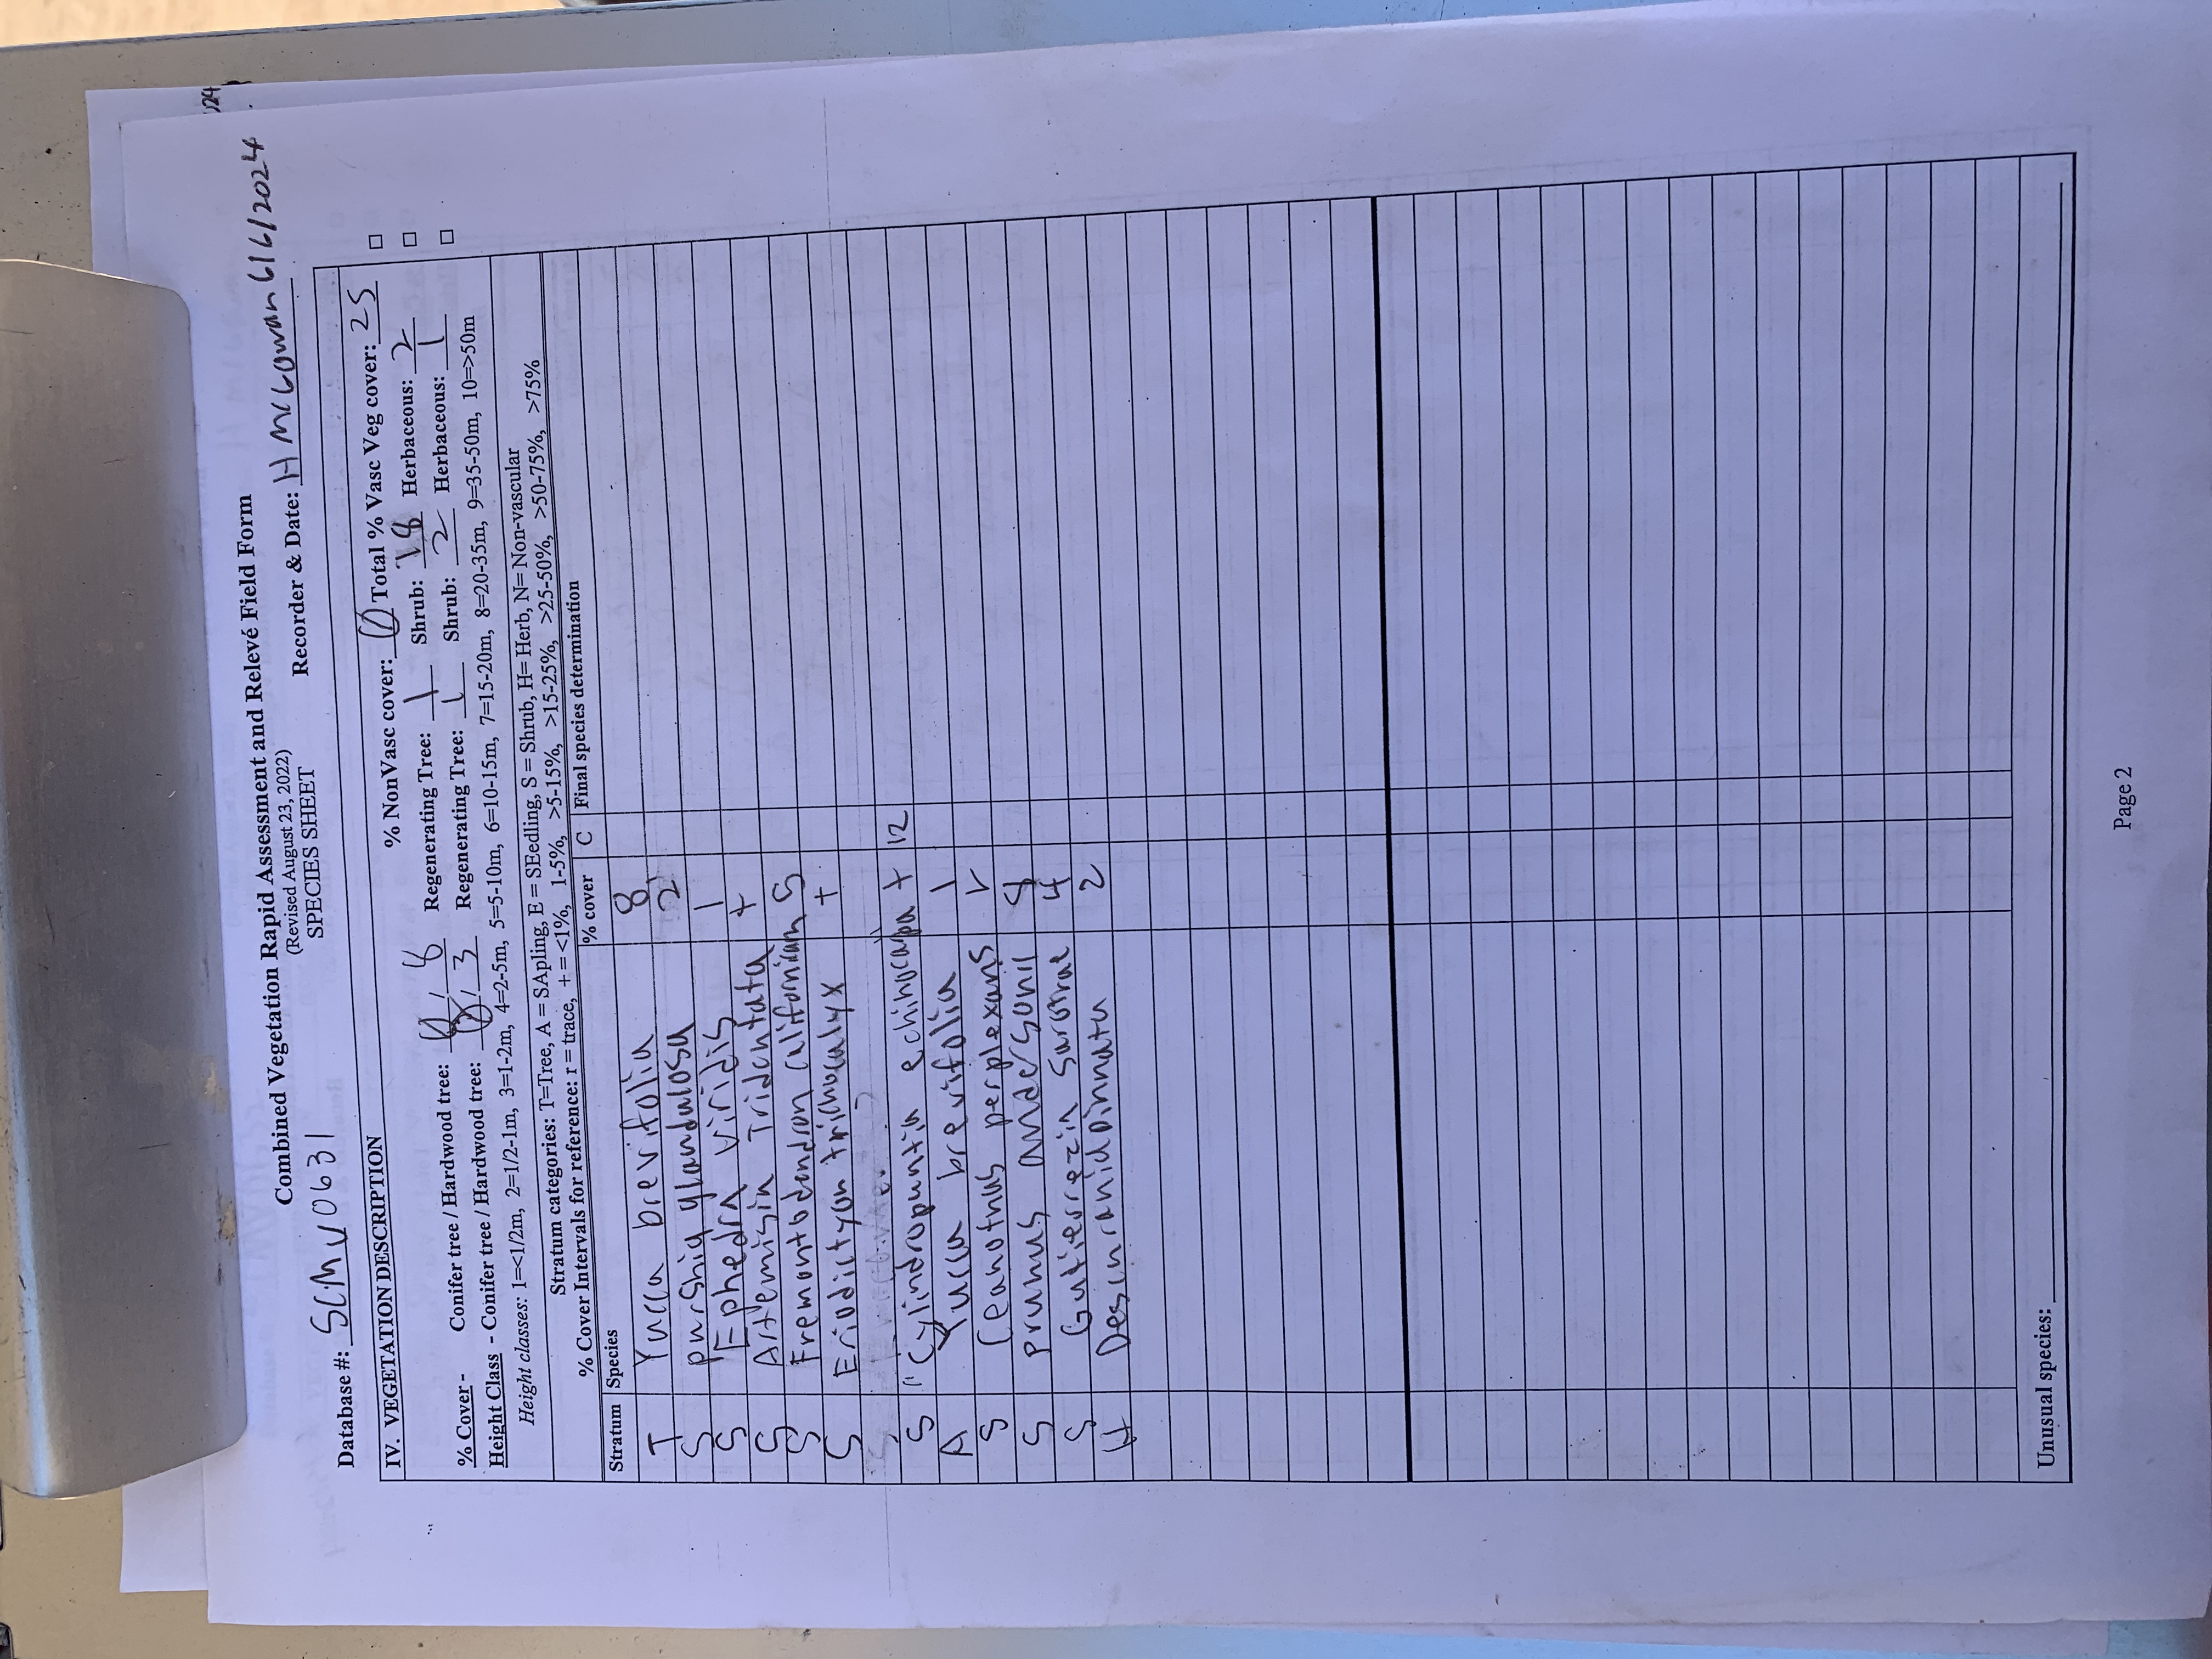 024
Combined Vegetation Rapid Assessment and Relevé Field Form
(Revised August 23, 2022)
SPECIES SHEET
Database #: SCMV0631 Recorder & Date: H McGowan 6/6/2024
IV. VEGETATION DESCRIPTION
% NonVasc cover: 0 Total % Vasc Veg cover: 25
% Cover - Conifer tree / Hardwood tree: 0 / 8 Regenerating Tree: 1 Shrub: 18 Herbaceous: 2
Height Class - Conifer tree / Hardwood tree: 0 / 3 Regenerating Tree: 1 Shrub: 2 Herbaceous: 1
Height classes: 1=<1/2m, 2=1/2-1m, 3=1-2m, 4=2-5m, 5=5-10m, 6=10-15m, 7=15-20m, 8=20-35m, 9=35-50m, 10=>50m
Stratum categories: T=Tree, A = SApling, E = SEedling, S = Shrub, H= Herb, N= Non-vascular
% Cover Intervals for reference: r = trace, + = <1%, 1-5%, >5-15%, >15-25%, >25-50%, >50-75%, >75%
Stratum Species % cover C Final species determination
T Yucca brevifolia 8
S purshia glandulosa 2
S Ephedra viridis 1
S Artemisia Tridentata +
S Fremontodendron californicum 5
S Eriodictyon trichocalyx +
S Cylindropuntia echinocarpa + 12
A Yucca brevifolia 1
S Ceanothus perplexans r
S prunus andersonii
S Gutierrezia Sarothrae 4
H Descurania pinnata 2
Unusual species:
Page 2